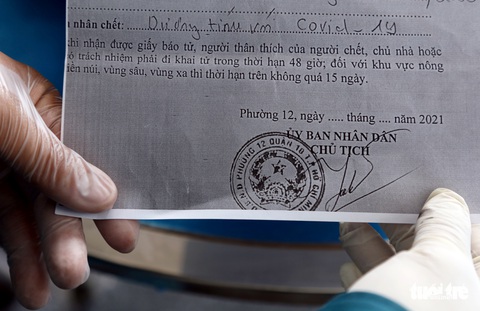 nhân chết: Dương tính với Covid-19
hi nhận được giấy báo tử, người thân thích của người chết, chủ nhà hoặc
ó trách nhiệm phải đi khai tử trong thời hạn 48 giờ; đối với khu vực nông
iền núi, vùng sâu, vùng xa thì thời hạn trên không quá 15 ngày.
Phường 12, ngày ..... tháng .... năm 2021
ỦY BAN NHÂN DÂN
CHỦ TỊCH
PHƯỜNG 12 QUẬN 10 T.P HỒ CHÍ MINH
tuổi trẻ